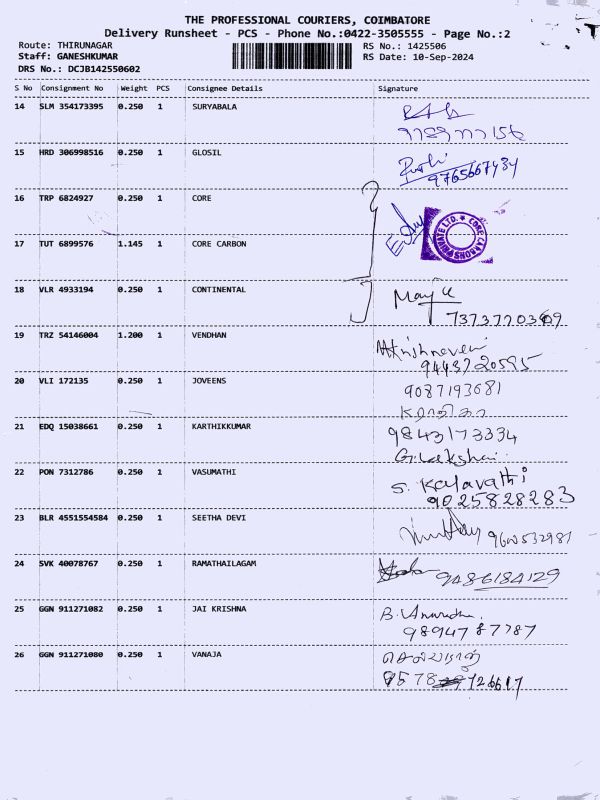 THE PROFESSIONAL COURIERS, COIMBATORE
Delivery Runsheet - PCS - Phone No.:0422-3505555 - Page No.:2
Route: THIRUNAGAR
Staff: GANESHKUMAR
DRS No.: DCJB142550602
RS No.: 1425506
RS Date: 10-Sep-2024
S No Consignment No Weight PCS Consignee Details Signature
14 SLM 354173395 0.250 1 SURYABALA
15 HRD 306998516 0.250 1 GLOSIL
9765667434
16 TRP 6824927 0.250 1 CORE
17 TUT 6899576 1.145 1 CORE CARBON
CORE CARBONS PRIVATE LTD. ★
18 VLR 4933194 0.250 1 CONTINENTAL
7373770369
19 TRZ 54146004 1.200 1 VENDHAN
9443720595
20 VLI 172135 0.250 1 JOVEENS
9087193681
21 EDQ 15038661 0.250 1 KARTHIKKUMAR
9843173334
22 PON 7312786 0.250 1 VASUMATHI
S. Kalavathi
9025828283
23 BLR 4551554584 0.250 1 SEETHA DEVI
24 SVK 40078767 0.250 1 RAMATHAILAGAM
9486184129
25 GGN 911271082 0.250 1 JAI KRISHNA
9894787787
26 GGN 911271080 0.250 1 VANAJA